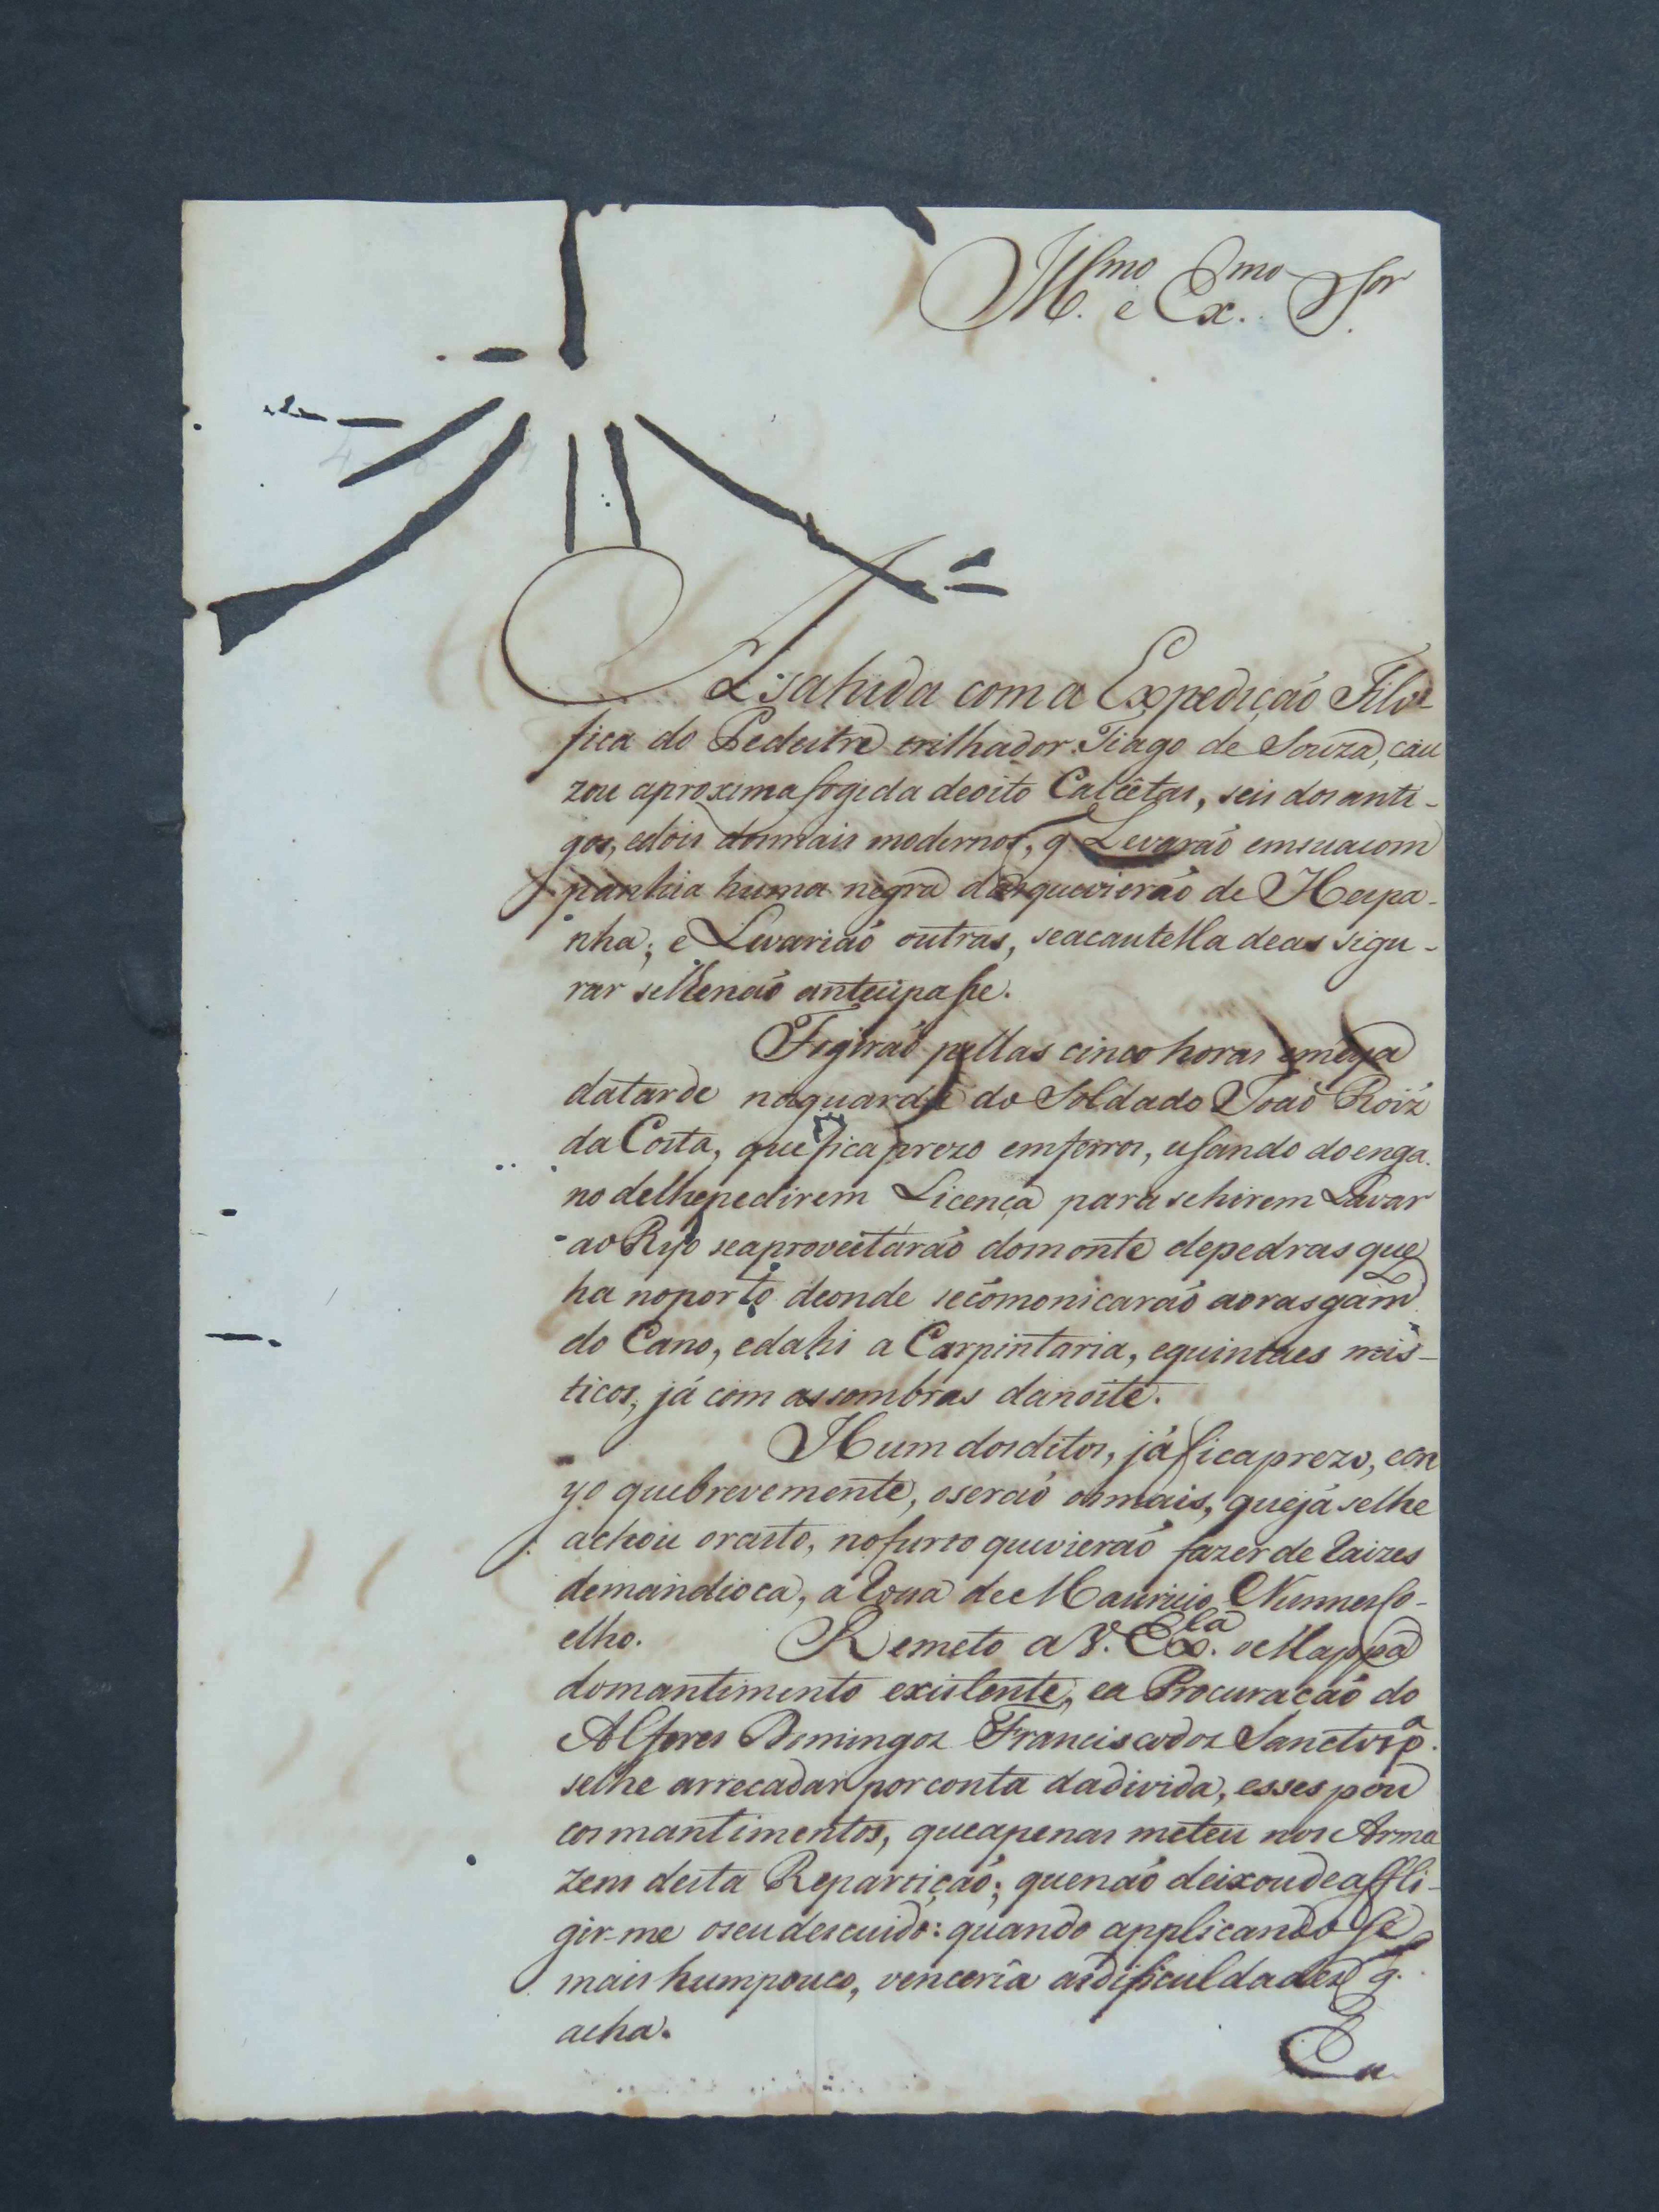 Ill.mo e Ex.mo Sor
A sahida com a Expedição Filo-
fica do Pedestre trilhador Tiago de Souza, cau
zou aproxima fogida deoito Calcêtas, seis dos anti-
gos, edois dosmais modernos, q Levarão emsuacom
panhia huma negra dasquevierão de Hespa-
nha; e Levarião outras, seacautella deas sigu-
rar selhenão antecipasse.
Fogirão pellas cinco horas emeya
datarde naguarda do Soldado João Roiz
da Costa, quefica prezo emferros, usando doenga-
no delhepedirem Licença para sehirem Lavar
ao Ryo seaproveitarão domonte depedras que
ha noporto deonde secomonicarão aorasgam
do Cano, edahi a Carpintaria, equintaes mis-
ticos, já com assombras danoite.
Hum dosditos, já fica prezo, ecre
yo quebrevemente, oserão osmais, quejá selhe
achou orasto, nofurto quevierão fazer de raizes
demandioca, a rossa de Mauricio Nunnes Co-
elho. Remeto a V. Ex.cia o Mappa
domantimento existente, ea Procuração do
Alferes Domingos Franciscodos Sanctos p.a
selhe arrecadar porconta dadivida, esses pou
cosmantimentos, queapenas meteu nos Arma
zens desta Repartição; quenão deixoudeaffli-
gir-me oseudescuido: quando applicandosse
mais humpouco, venceria asdificuldades q.
acha.
Eu